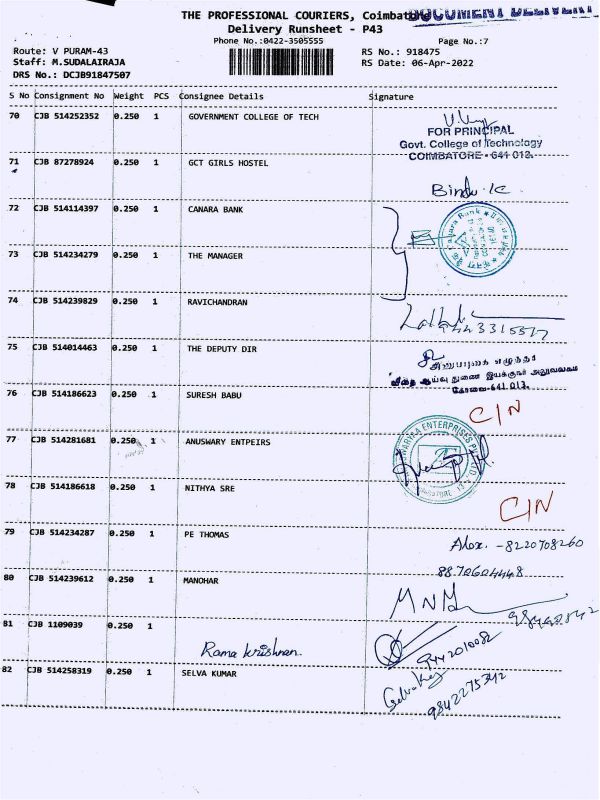 THE PROFESSIONAL COURIERS, Coimbatore
DOCUMENT DELIVERY
Delivery Runsheet - P43
Phone No.:0422-3505555
Page No.:7
Route: V PURAM-43
RS No.: 918475
Staff: M.SUDALAIRAJA
RS Date: 06-Apr-2022
DRS No.: DCJB91847507
S No Consignment No Weight PCS Consignee Details Signature
70 CJB 514252352 0.250 1 GOVERNMENT COLLEGE OF TECH
FOR PRINCIPAL
Govt. College of Technology
COIMBATORE - 641 013.
71 CJB 87278924 0.250 1 GCT GIRLS HOSTEL
Bindu.K
72 CJB 514114397 0.250 1 CANARA BANK
73 CJB 514234279 0.250 1 THE MANAGER
74 CJB 514239829 0.250 1 RAVICHANDRAN
75 CJB 514014463 0.250 1 THE DEPUTY DIR
விதை ஆய்வு துணை இயக்குநர் அலுவலகம்
கோவை-641 013.
76 CJB 514186623 0.250 1 SURESH BABU
C/N
77 CJB 514281681 0.250 1 ANUSWARY ENTPEIRS
78 CJB 514186618 0.250 1 NITHYA SRE
C/N
79 CJB 514234287 0.250 1 PE THOMAS
Alex. - 8220708260
80 CJB 514239612 0.250 1 MANOHAR
81 CJB 1109039 0.250 1
Rama krishnan.
9442010082
82 CJB 514258319 0.250 1 SELVA KUMAR
9842275342